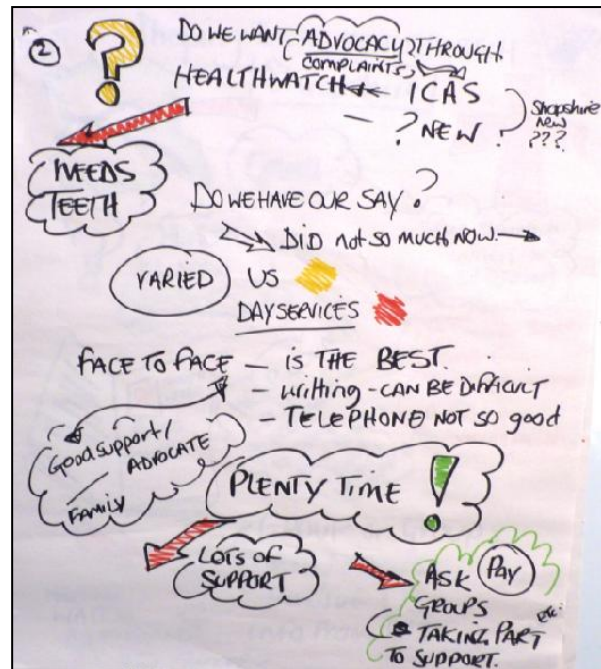 2 ?
DO WE WANT ADVOCACY THROUGH
COMPLAINTS,
HEALTHWATCH ICAS
— ? NEW
Shopshire
new
???
NEEDS
TEETH
DO WE HAVE OUR SAY?
DID not so much now.
VARIED US
DAY SERVICES
FACE TO FACE — is THE BEST.
- writting - CAN BE DifficulT
- TELEPHONE NOT SO good
Good support/
ADVOCATE
FAMILY
PLENTY TIME !
LOTS OF
SUPPORT
ASK PAY
GROUPS
ETC.
TAKING PART
TO SUPPORT.